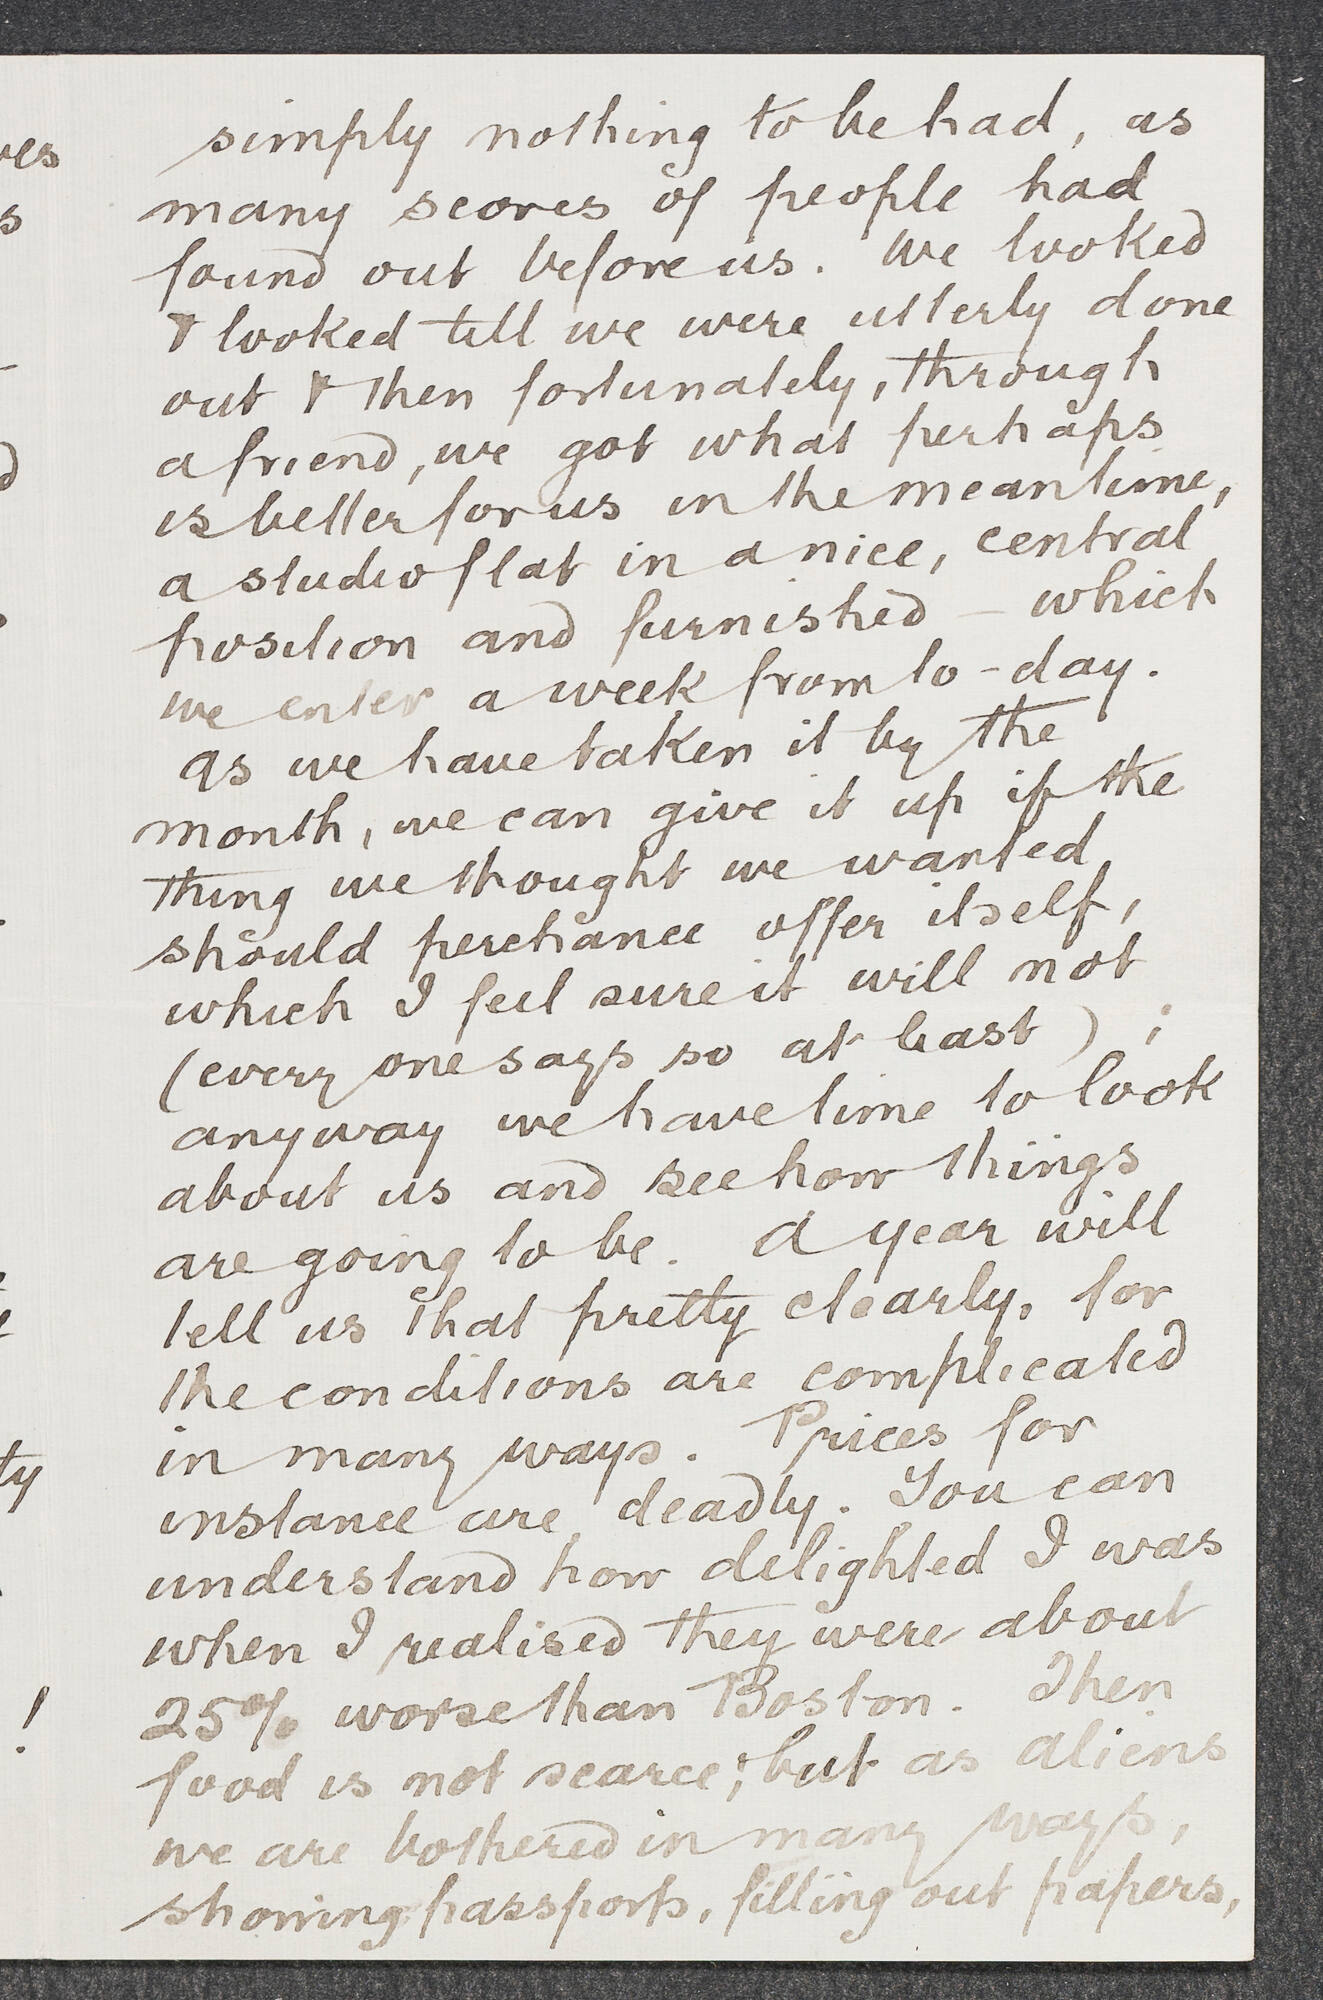 simply nothing to be had, as
many scores of people had
found out before us. We looked
& looked till we were utterly done
out & then fortunately, through
a friend, we got what perhaps
is better for us in the meantime,
a studio flat in a nice, central
position and furnished – which
we enter a week from to-day.
As we have taken it by the
month, we can give it up if the
thing we thought we wanted
should perchance offer itself,
which I feel sure it will not
(every one says so at least);
anyway we have time to look
about us and see how things
are going to be. A year will
tell us that pretty clearly, for
the conditions are complicated
in many ways. Prices for
instance are deadly. You can
understand how delighted I was
when I realised they were about
25% worse than Boston. Then
food is not scarce; but as aliens
we are bothered in many ways,
showing passports, filling out papers,